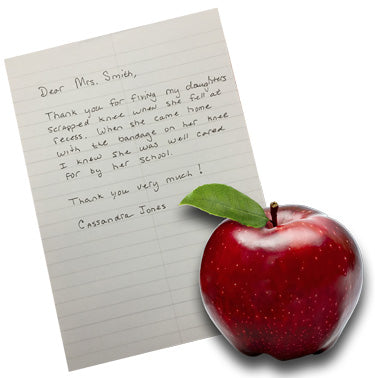 Dear Mrs. Smith,
Thank you for fixing my daughters
scrapped knee when she fell at
recess. When she came home
with the bandage on her knee
I knew she was well cared
for by her school.
Thank you very much!
Cassandra Jones